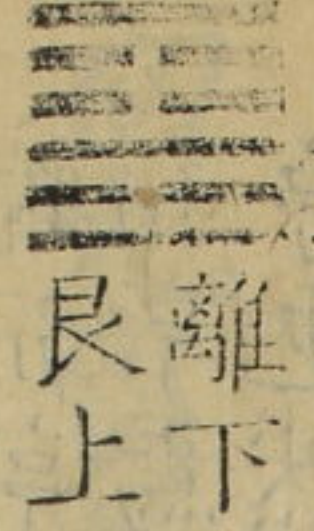 離下
艮上